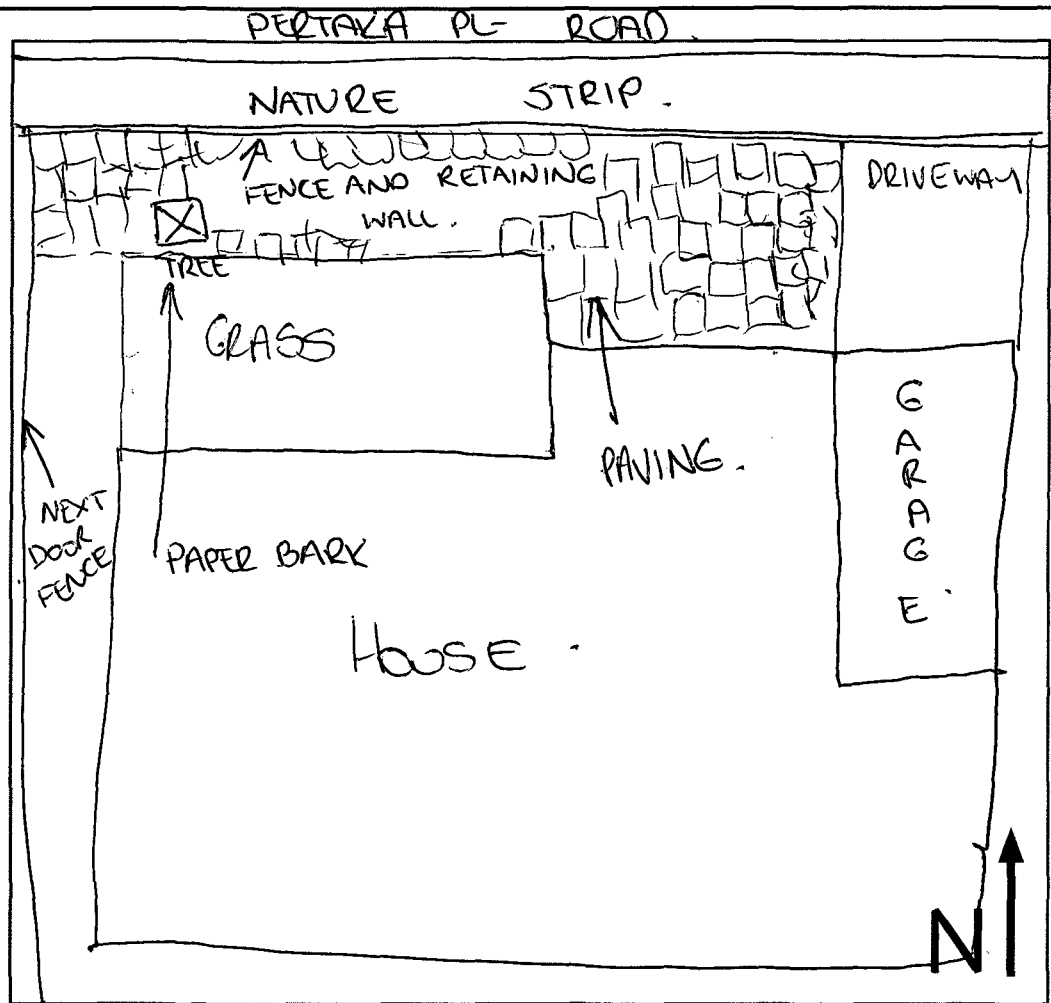 PERTAKA PL- ROAD.
NATURE STRIP.
FENCE AND RETAINING
WALL.
DRIVEWAY
TREE
GRASS
PAVING.
GARAGE.
NEXT
DOOR
FENCE
PAPER BARK
HOUSE.
N